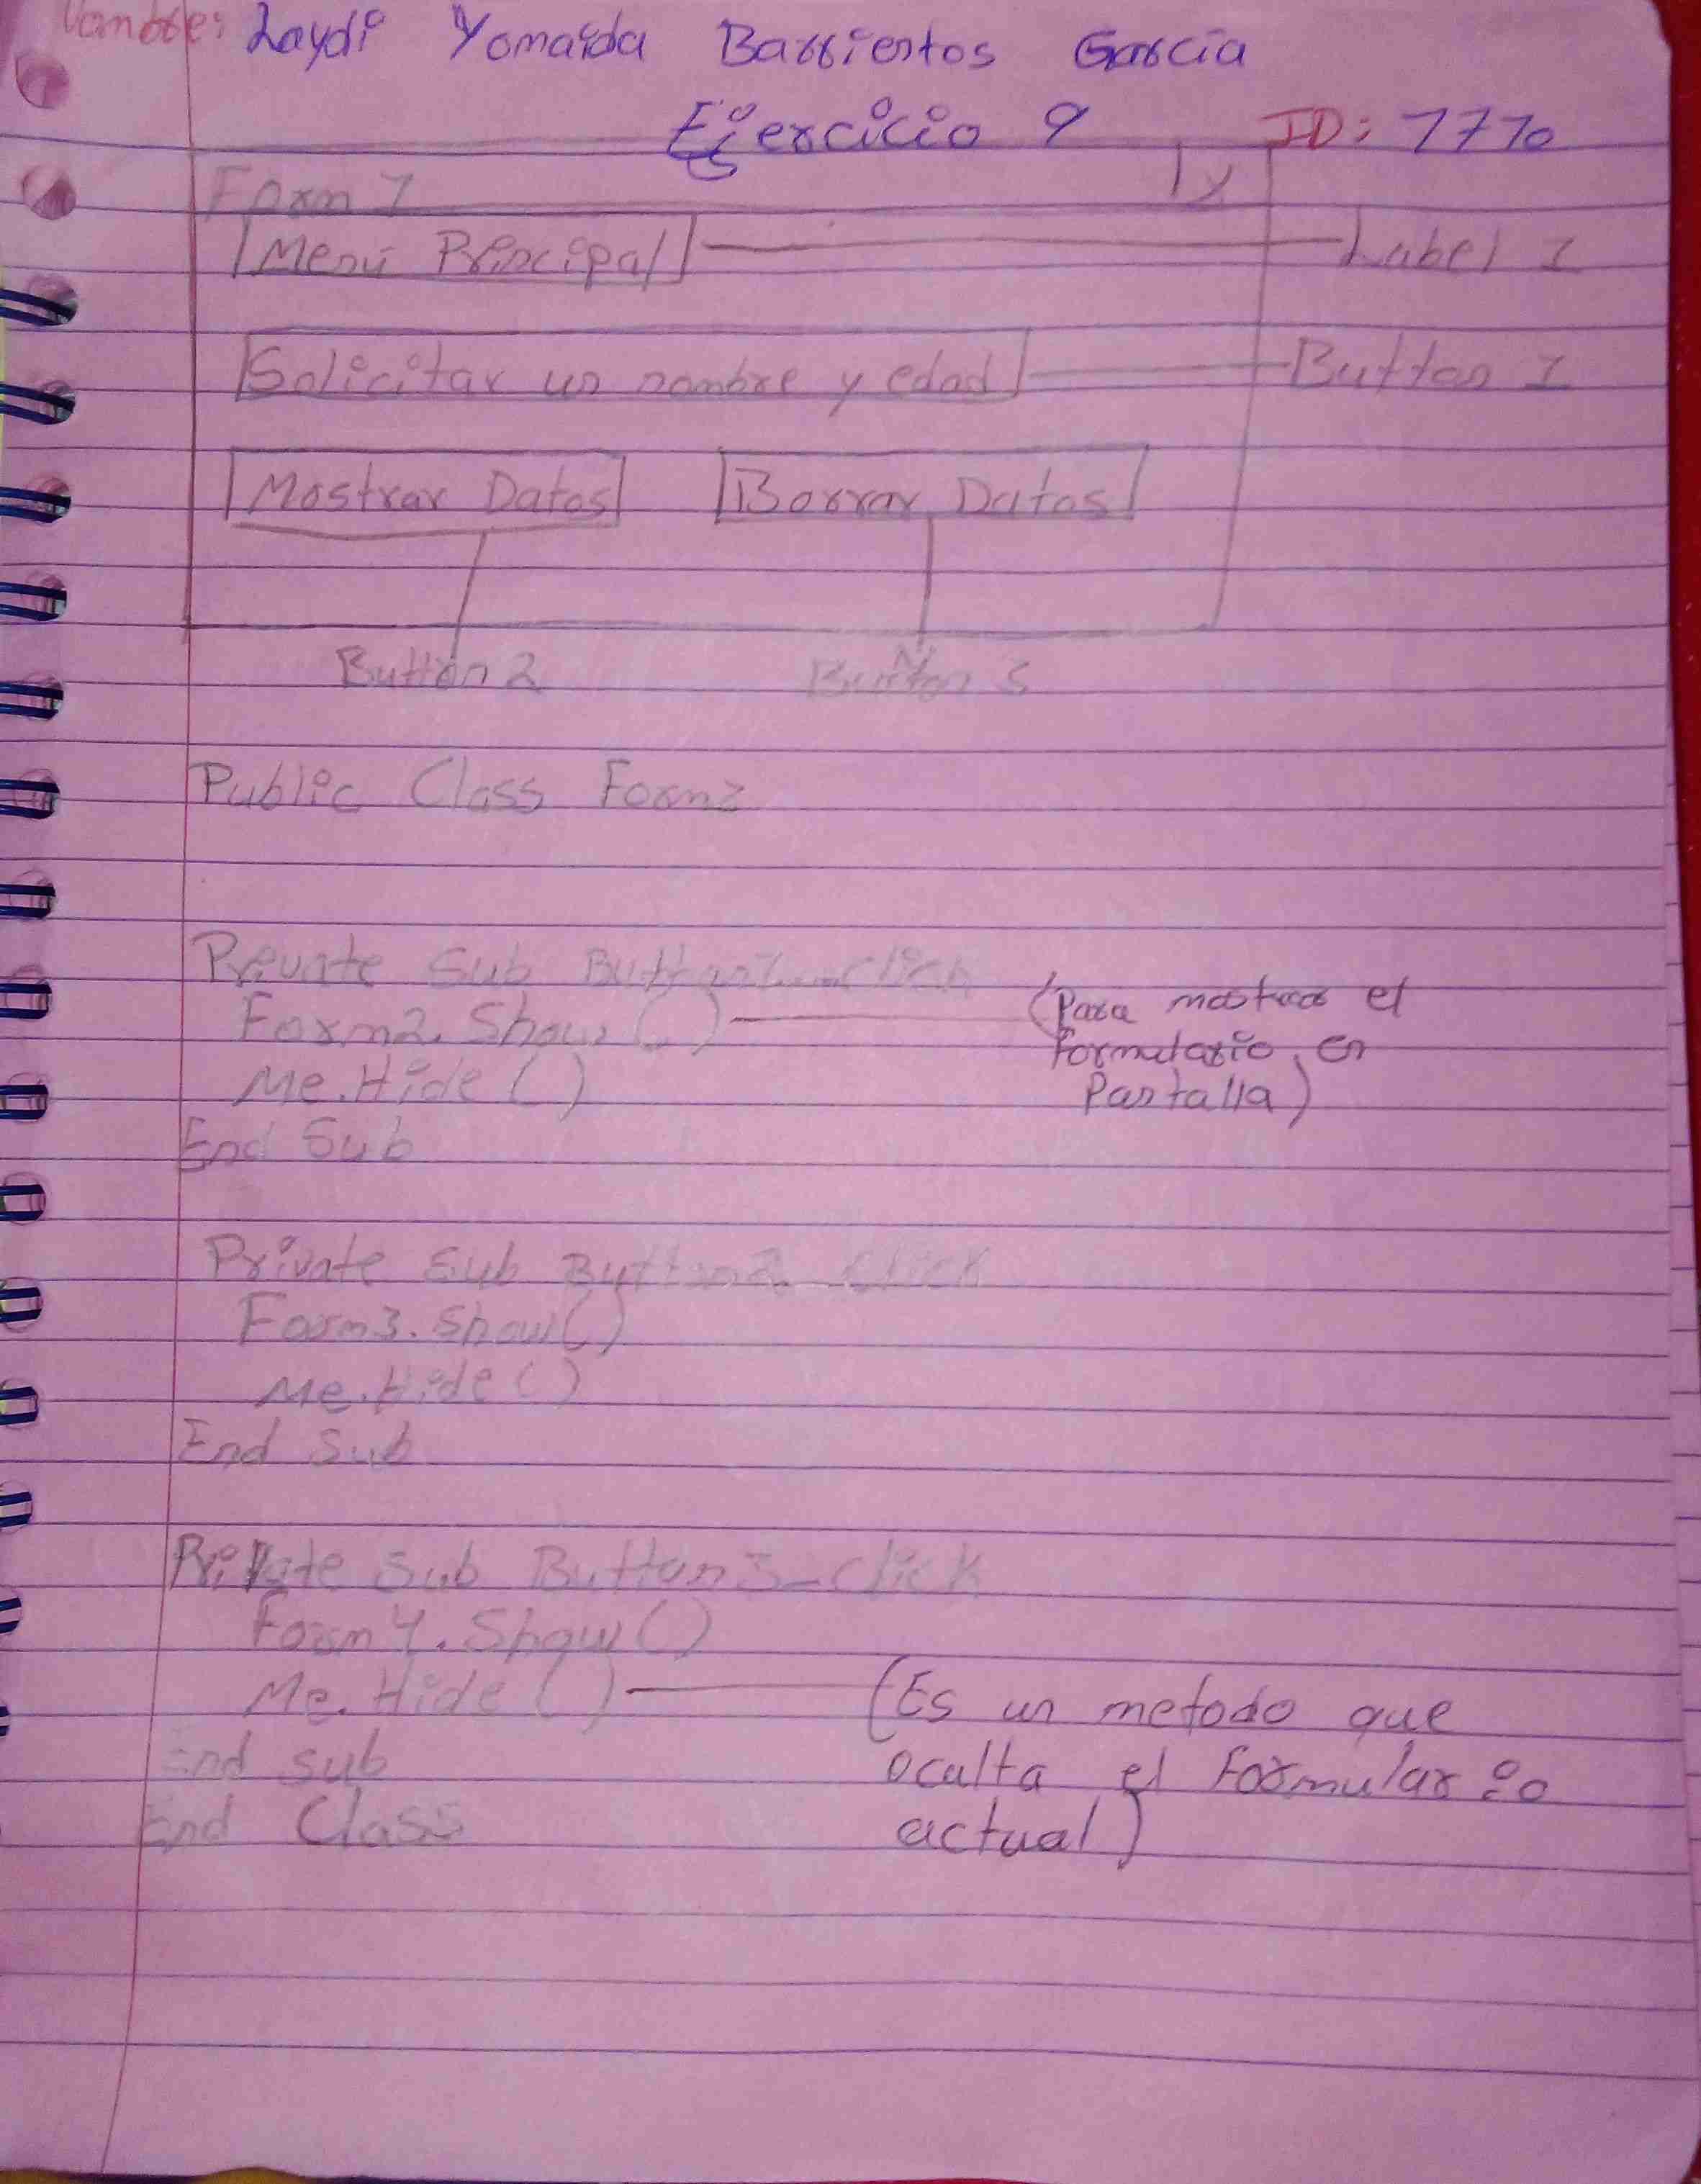 Nombre: Laydi Yomaida Barrientos García
Ejercicio 9 ID: 7770
Form 1 X
Menú Principal Label 1
Solicitar un nombre y edad Button 1
Mostrar Datos Borrar Datos
Button 2 Button 3
Public Class Form
Private Sub Button1_click
Form2.Show() (Para mostrar el
formulario en
Me.Hide() Pantalla)
End Sub
Private Sub Button2_click
Form3.Show()
Me.Hide()
End Sub
Private Sub Button3_click
Form4.Show()
Me.Hide() (Es un metodo que
End sub oculta el formulario
End Class actual)